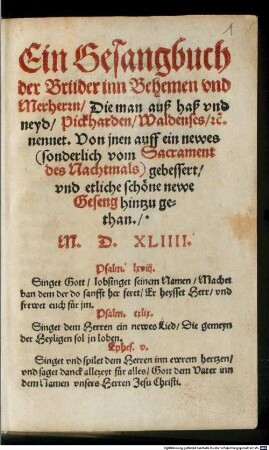 1
Ein Gesangbuch
der Brüder inn Behemen vnd
Merherrn/ Die man auß haß vnd
neyd/ Pickharden/ Waldenses/ ꝛc̃.
nennet. Von jnen auff ein newes
(sonderlich vom Sacrament
des Nachtmals) gebessert/
vnd etliche schöne newe
Geseng hinzu ge-
than./·
M. D. XLIIII.
Psalm. lxviij.
Singet Gott/ lobsinget seinem Namen/ Machet
ban dem der do sanfft her feret/ Er heysset Herr/ vnd
frewet euch für jm.
Psalm. cxlix.
Singet dem Herren ein newes Lied/ Die gemeyn
der Heyligen sol jn loben.
Ephes. v.
Singet vnd spilet dem Herren inn ewrem hertzen/
vnd saget danck allezeyt für alles/ Gott dem Vater inn
dem Namen vnsers Herren Jesu Christi.